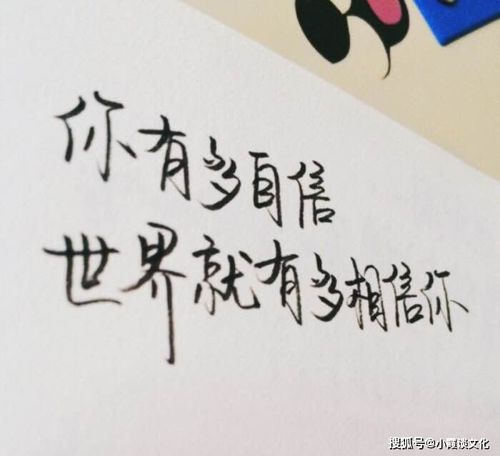 你有多自信
世界就有多相信你
搜狐号@小霞谈文化